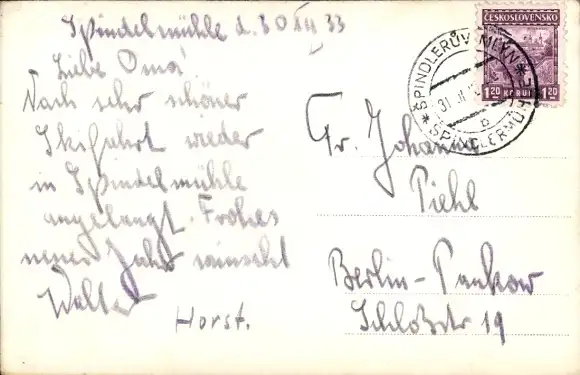 Spindelmühle d. 30 XII 33
Liebe Oma!
Nach sehr schöner
Skifahrt wieder
in Spindelmühle
angelangt. Frohes
neues Jahr wünscht
Walter
Horst.
ČESKOSLOVENSKO
1.20 KORUNA 1.20
ŠPINDLERŮV MLÝN
SPINDLERMÜHLE
31
b
Fr. Johanna
Piehl
Berlin-Pankow
Schloßstr 19